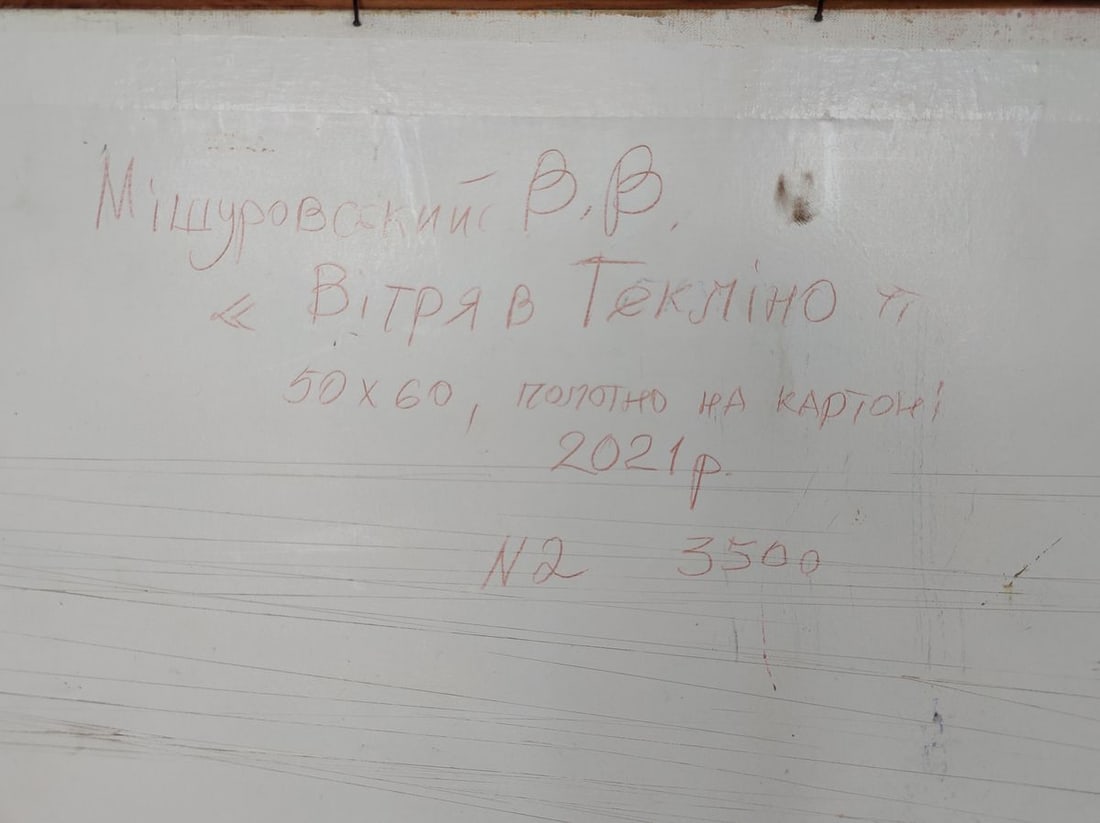 Мішуровский В.В.
« Вітряв Текліно »
50х60, полотно на картоні
2021р.
N2 3500